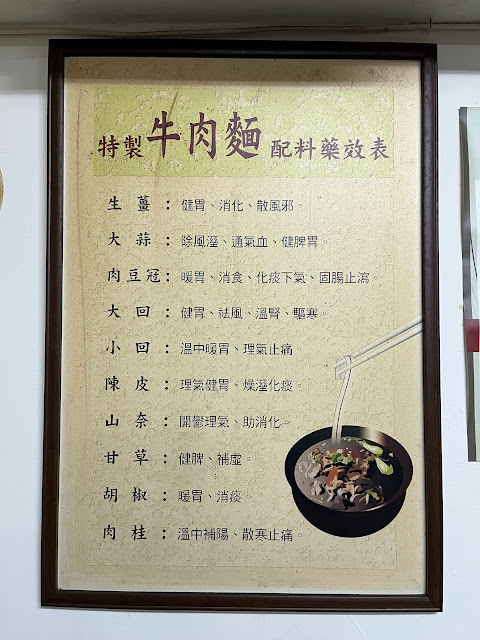 特製牛肉麵配料藥效表
生薑：健胃、消化、散風邪。
大蒜：除風溼、通氣血、健脾胃。
肉豆冠：暖胃、消食、化痰下氣、固腸止瀉。
大回：健胃、祛風、溫腎、驅寒。
小回：溫中暖胃、理氣止痛。
陳皮：理氣健胃、燥溼化痰。
山奈：開鬱理氣、助消化。
甘草：健脾、補虛
胡椒：暖胃、消痰。
肉桂：溫中補陽、散寒止痛。